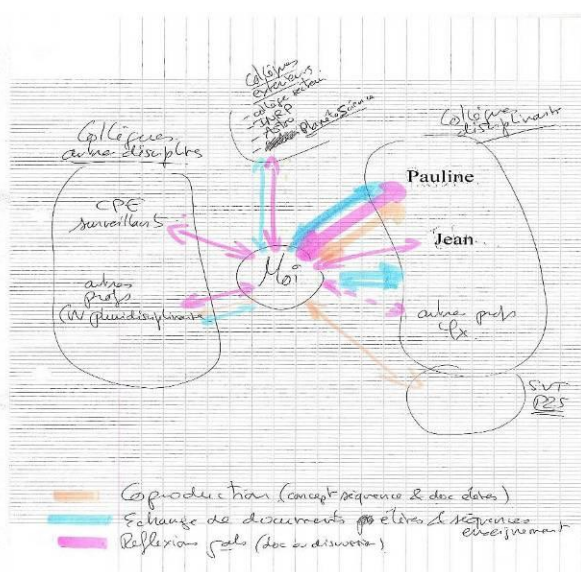 Collègues
extérieurs
- collège secteur
- INRP
- Astro
- Planète Science
Collègues
autres disciplines
CPE
surveillants
autres
profs
(IV pluridisciplinaire
Moi
Collègues
disciplinaires
Pauline
Jean
autres profs
φx
SVT
P25
Coproduction (concept séquence & doc élèves)
Echange de documents élèves & séquences
enseignement
Réflexions (doc ou discussion)